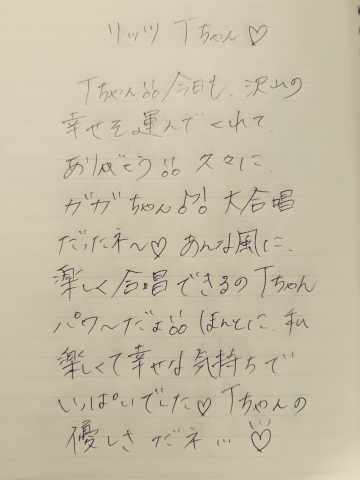 リッツ Tちゃん♡
Tちゃん!! 今日も、沢山の
幸せを運んでくれて、
ありがとう!! 久々に、
ガガちゃん♪!! 大合唱
だったネ〜♡ あんな風に、
楽しく合唱できるのTちゃん
パワ〜だょ!! ほんとに、私
楽しくて幸せな気持ちで
いっぱいでした♡ Tちゃんの
優しさだネ…♡